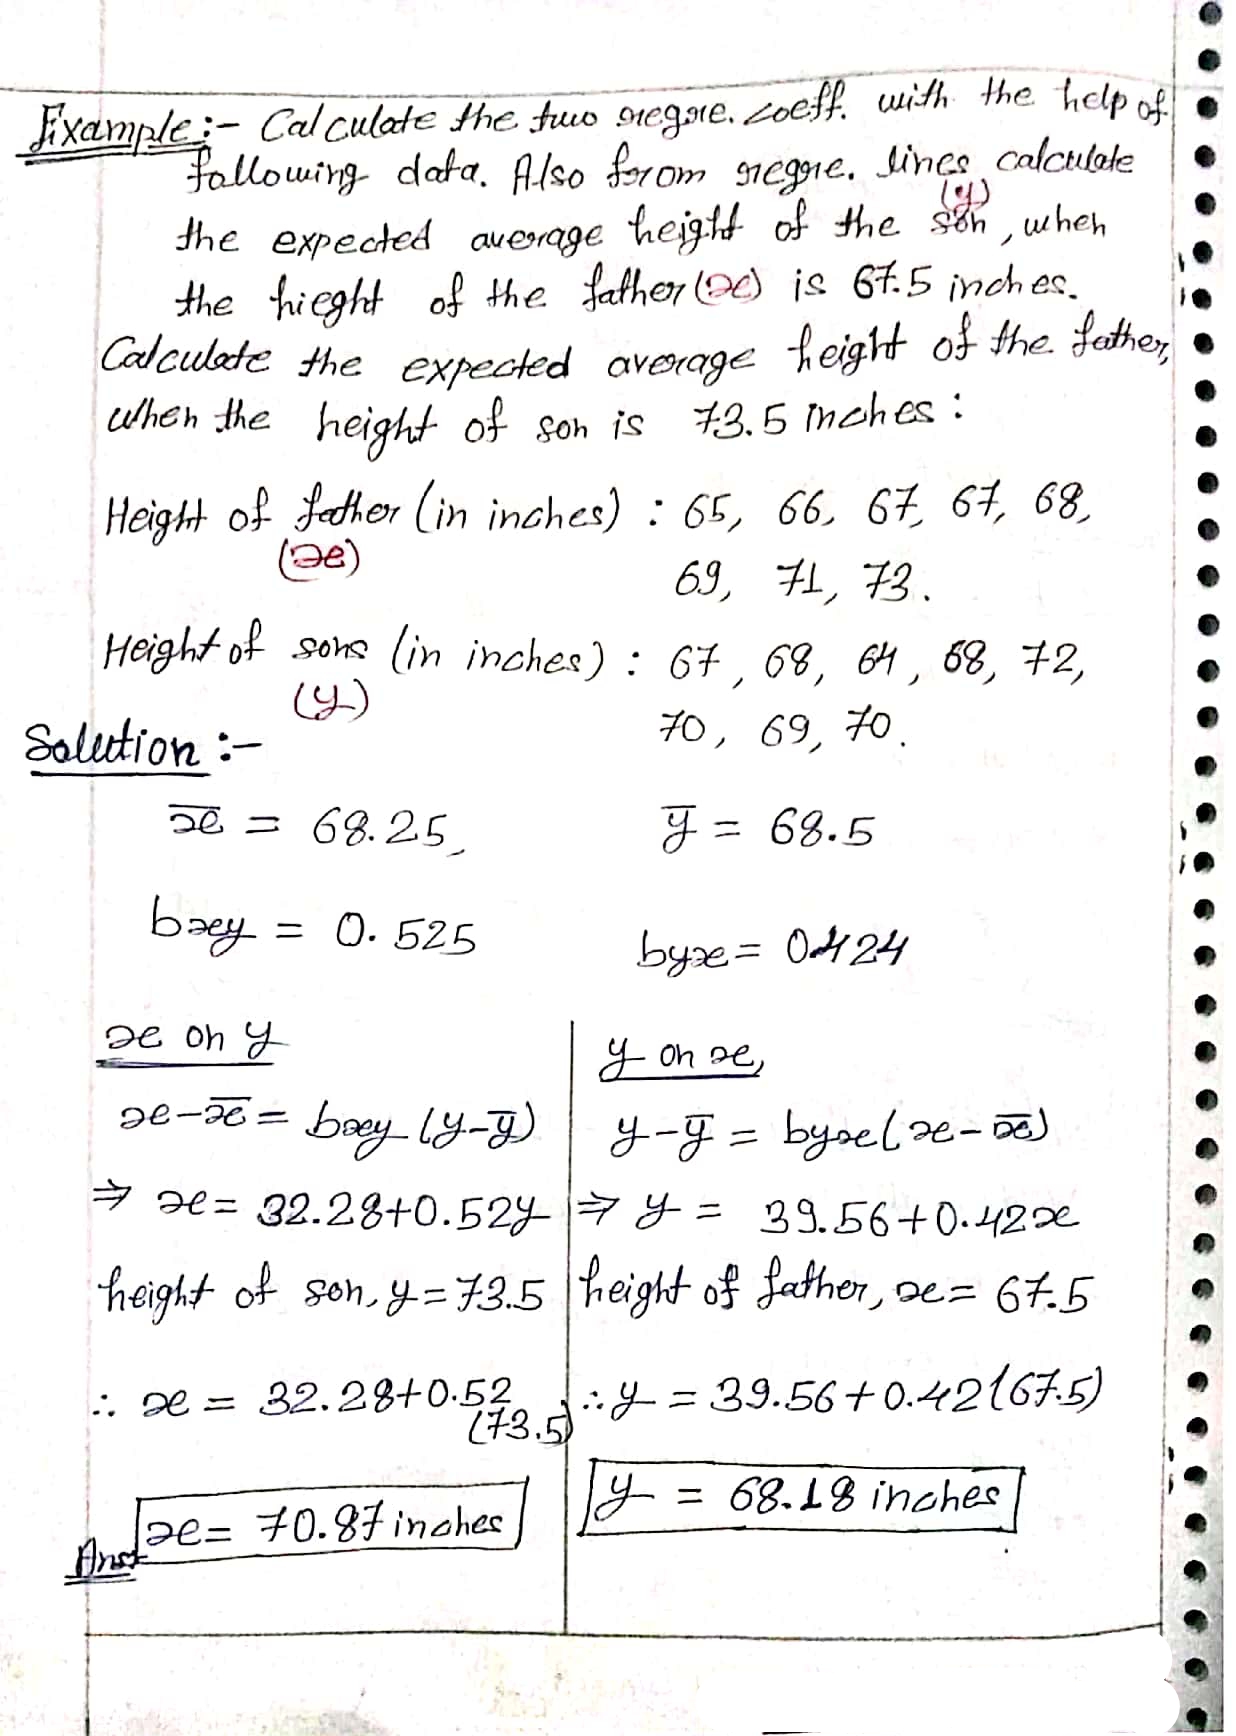 Example:- Calculate the two regre. coeff. with the help of
following data. Also from regre. lines calculate
(y)
the expected average height of the son, when
the hieght of the father (x) is 67.5 inches.
Calculate the expected average height of the father,
when the height of son is 73.5 inches:
Height of father (in inches) : 65, 66, 67, 67, 68,
(x)
69, 71, 73.
Height of sons (in inches) : 67, 68, 64, 68, 72,
(y)
70, 69, 70.
Solution :-
x̅ = 68.25, y̅ = 68.5
bxy = 0.525 byx = 0.424
x on y
x - x̅ = bxy (y-y̅)
⇒ x = 32.28+0.52y
height of son, y = 73.5
∴ x = 32.28+0.52
(73.5)
x = 70.87 inches
Ans
y on x,
y - y̅ = byx(x - x̅)
⇒ y = 39.56+0.42x
height of father, x = 67.5
∴ y = 39.56+0.42(67.5)
y = 68.18 inches